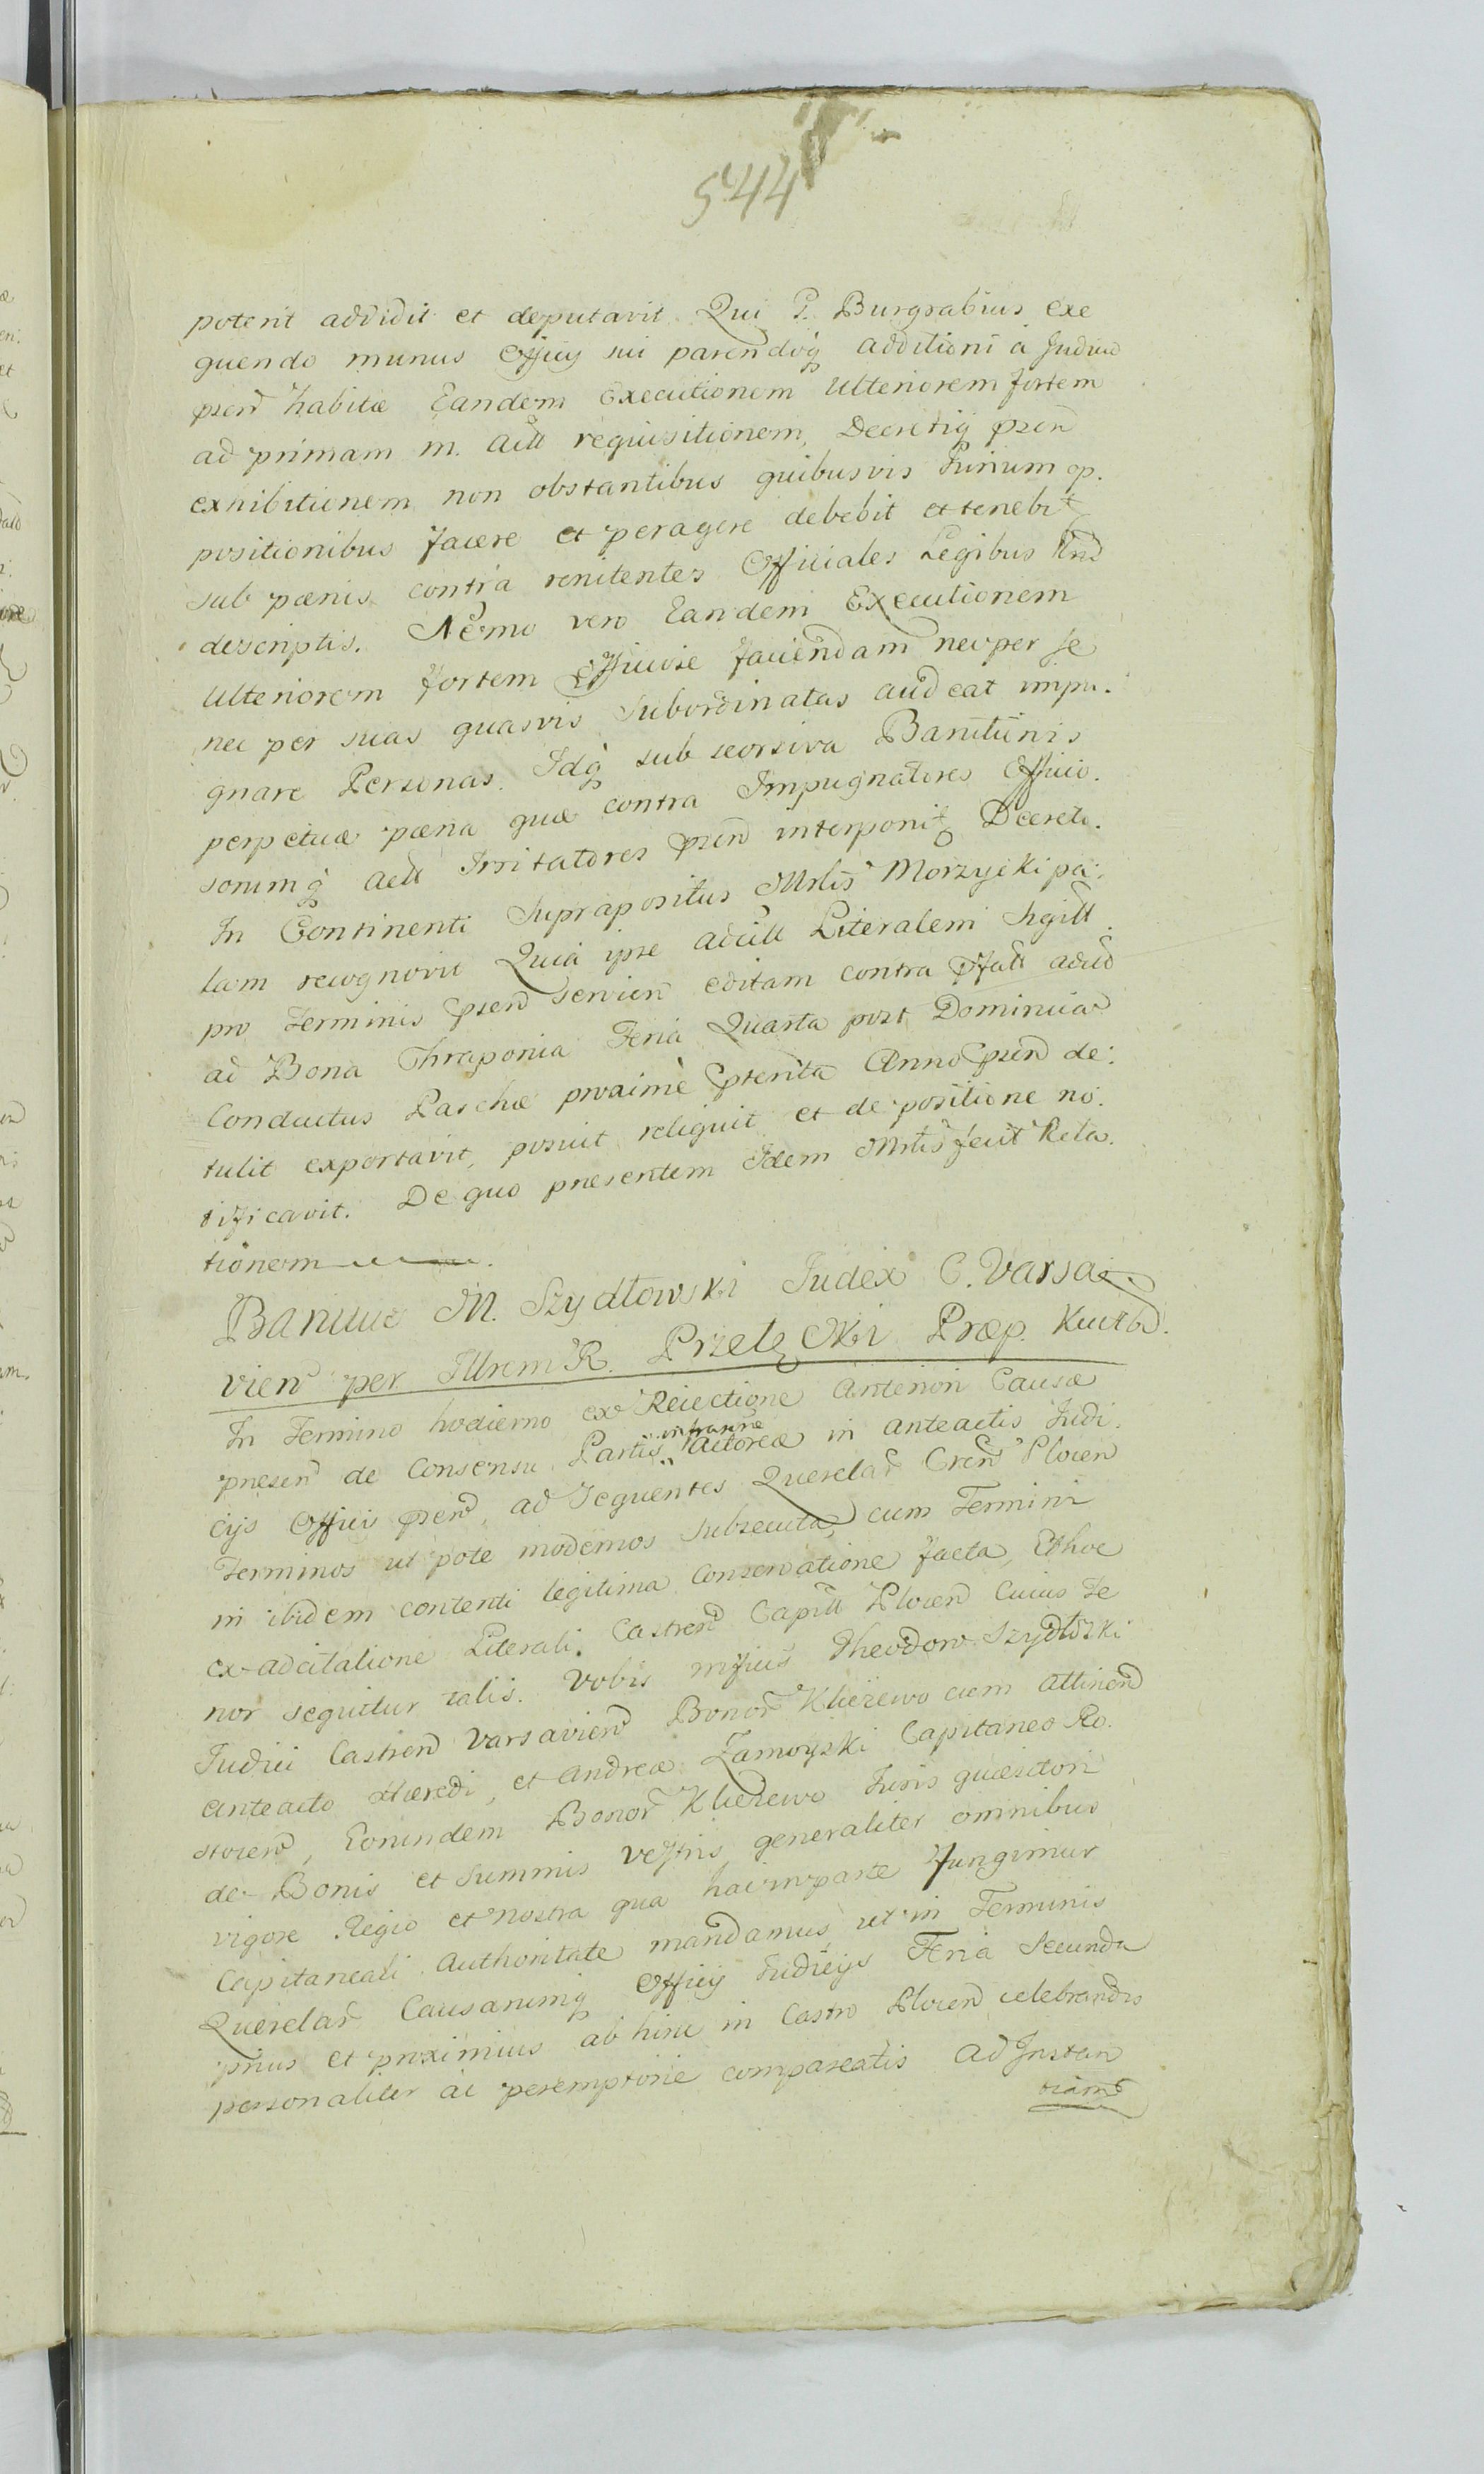 544
poterit addidit et deputavit Qui G. Burgrabius exe
quendo munus Officij sui parendoq additioni à Judicio
psen habitæ Eandem Executionem Ulteriorem fortem
ad primam m. Actt requisitionem, Decretiq psen
exhibitionem non obstantibus quibusvis Jurium op.
positionibus facere et peragere debebit et tenebit
sub pœnis contra renitentes Officiales Legibus Rnd
descriptis. Nemo vero Eandem Executionem
Ulteriorem fortem Officiose faciendam nec per se
nec per suas quasvis Subordinatas audeat impu.
gnare Personas. Idq sub seorsiva Banitionis
perpetuæ pæna quæ contra Impugnatores Officio.
sorumq actt Irritatores psen interponit Decreto.
In Continenti Suprapositus Mrlis Morzycki pa:
lam recognovit Quia ipse adcitt Literalem Sigitt.
pro Terminis psen servien editam contra pfatt adcid
ad Bona Thraponia Feria Quarta post Dominica
Conductus Paschæ proxime pterita Anno psen de:
tulit exportavit, posuit reliquit et de positione no.
tificavit. De quo præsentem Idem Mrlis fecit Rela.
tionem
Banitue M. Szydłowski Judex C. Varsa
vien per Illrem R. Przelęcki Præp. Kuczb.
In Termino hodierno ex Reiectione Anteriori Causæ
presen de Consensu Partis infranæ Actoreæ in anteactis Judi.
cijs Officii psen, ad sequentes Querelar Cren Plocen
Terminos ut pote modernos subsecuta, cum Termini
in ibidem contenti legitima Conservatione facta, Et hoc
ex adcitatione Literali Castren Capitt Plocen Cuius Te
nor sequitur talis. Vobis mfficis Theodoro Szydłoski
Judici Castren Varsavien Bonor Kliczewo cum attinen
anteacto Hæredi, et Andreæ Zamoyski Capitaneo Ro.
stocen, Eorundem Bonor Kliczewo Juris quæsitori
de Bonis et Summis vestris generaliter omnibus
vigore Regio et nostra qua hac in parte fungimur
Capitaneali Authoritate mandamus, ut in Terminis
Querelar Causarumq Officij Judicijs Feria Secunda
prius et proximius ab hinc in Castro Plocen celebrandis
personaliter ac peremptorie compareatis Ad Instan
tiam